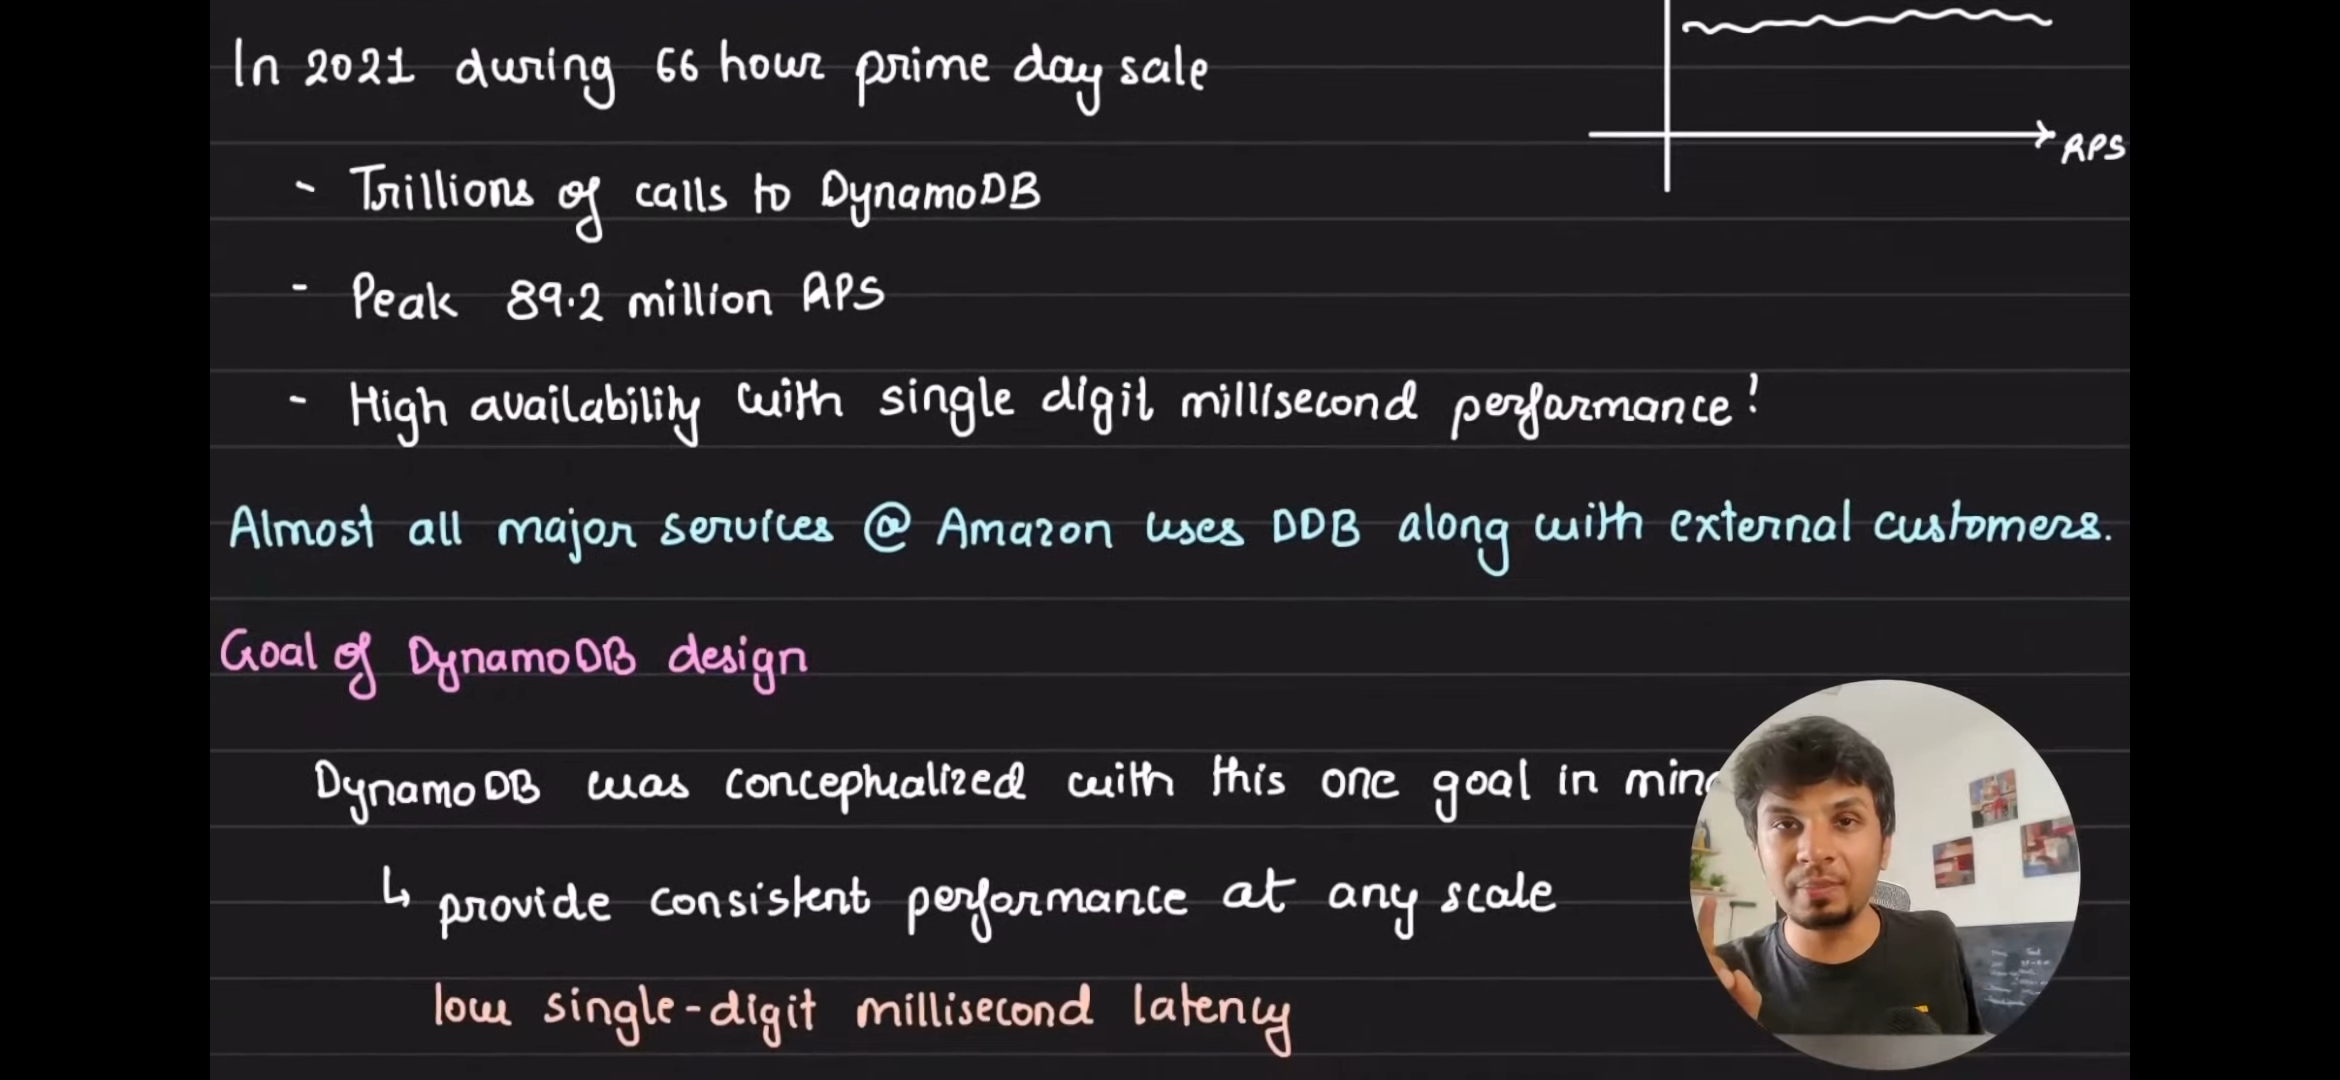 In 2021 during 66 hour prime day sale
RPS
- Trillions of calls to DynamoDB
- Peak 89.2 million RPS
- High availability with single digit millisecond performance!
Almost all major services @ Amazon uses DDB along with external customers.
Goal of DynamoDB design
DynamoDB was conceptualized with this one goal in mind
↳ provide consistent performance at any scale
low single-digit millisecond latency